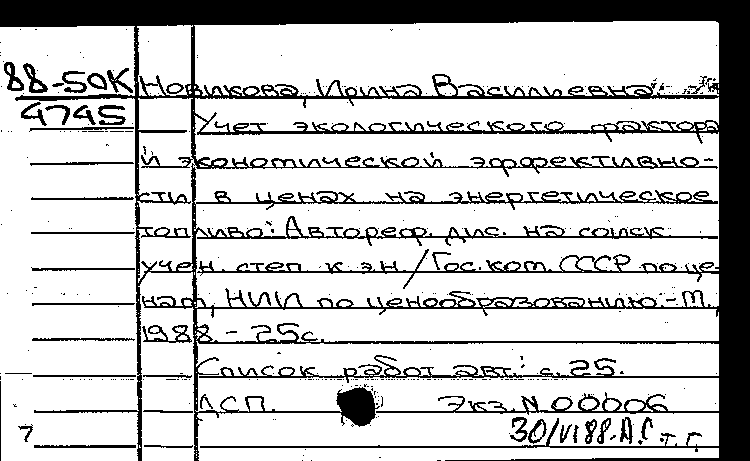 88-50К Новикова, Ирина Васильевна
4745
Учет экологического фактора
и экономической эффективно-
сти в ценах на энергетическое
топливо: Автореф. дис. на соиск.
учен. степ. к.э.н. / Гос. ком. СССР по це-
нам, НИИ по ценообразованию.-М.,
1988. - 25с.
Список работ авт.: с. 25.
ДСП. Экз. N 00006
7 30/VI88.